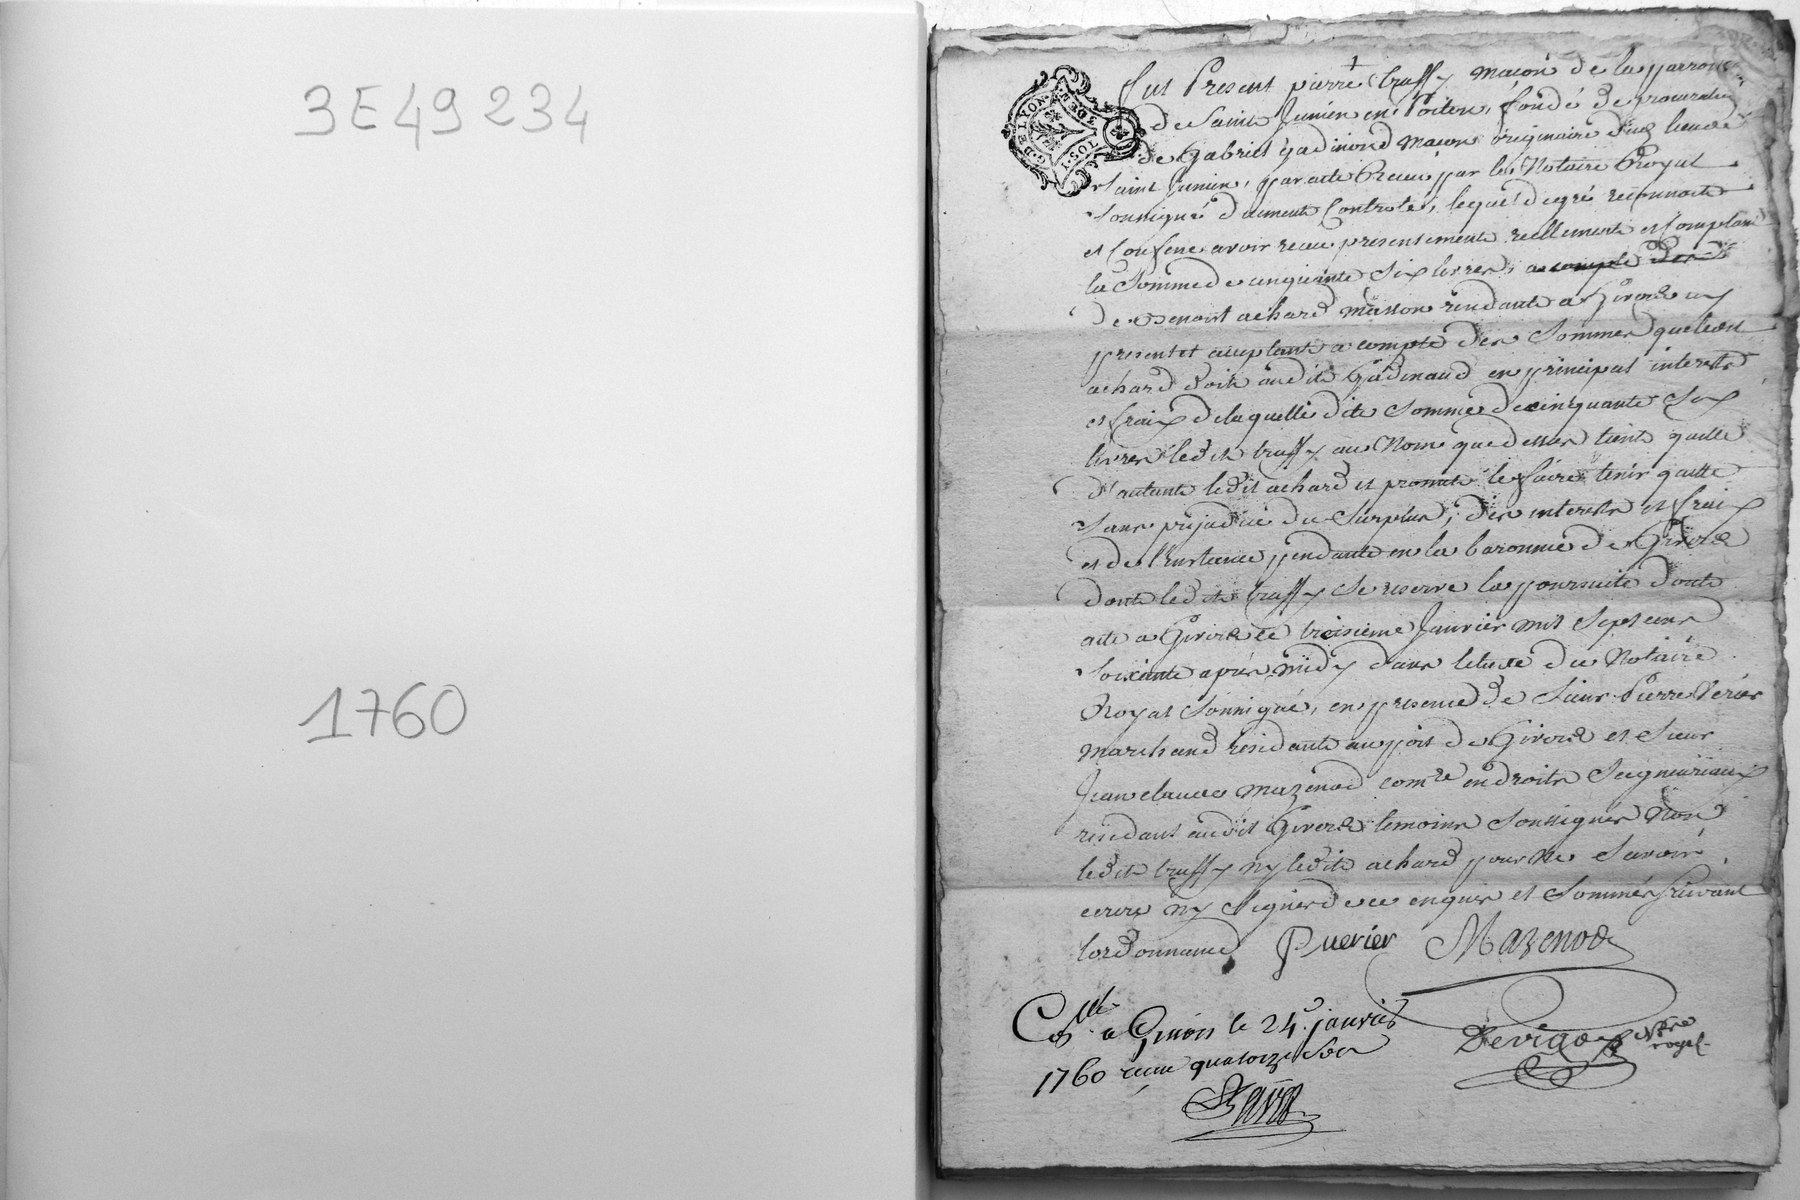 3E49 234
1760
G. DE LYON. 3. DE. N TOS.
fut Present pierre truffy macon de la parroisse
de Saint Junien en Poitou, fondé de procuration
de Gabriel gadinaud macon originaire dud lieu de
Saint Junien, par acte Receu par le Notaire Royal
Soussigné duement Controlé, lequel de gré reconnoit
et Confesse avoir receu presentement reellement et Comptant
la Somme de cinquante Six livres, a compte des
de Benoist achard masson residant a Givors cy
present et acceptant a compte des Sommes que ledit
achard doit audit Gadinaud en principal interests
et fraix de laquelle dite Somme de cinquante Six
livres ledit truffy au Nom que dessus tient quitte
d'autant ledit achard et promet le faire tenir quitte
Sans prejudice du Surplus, des interests et fraix
et de l'instance pendante en la baronnie de Givors
dont ledit truffy Se reserve la poursuite dont
acte a Givors le troisieme Janvier mil Sept cens
Soixante après midy dans letude du Notaire
Royal Soussigné, en presence de Sieur Pierre Verier
Marchand residant au port de Givors et Sieur
Jean claude Mazenod com.re en droits Seigneuriaux
residant audit Givors temoins Soussignés Non
ledit truffy ny ledit achard pour Ne Savoir
ecrire ny Signer de ce enquis et Sommés Suivant
lordonnance P verier Mazenod
Con.llé a Givors le 24.e janvier
1760 receu quatorze Sols
Devigo N.re royal